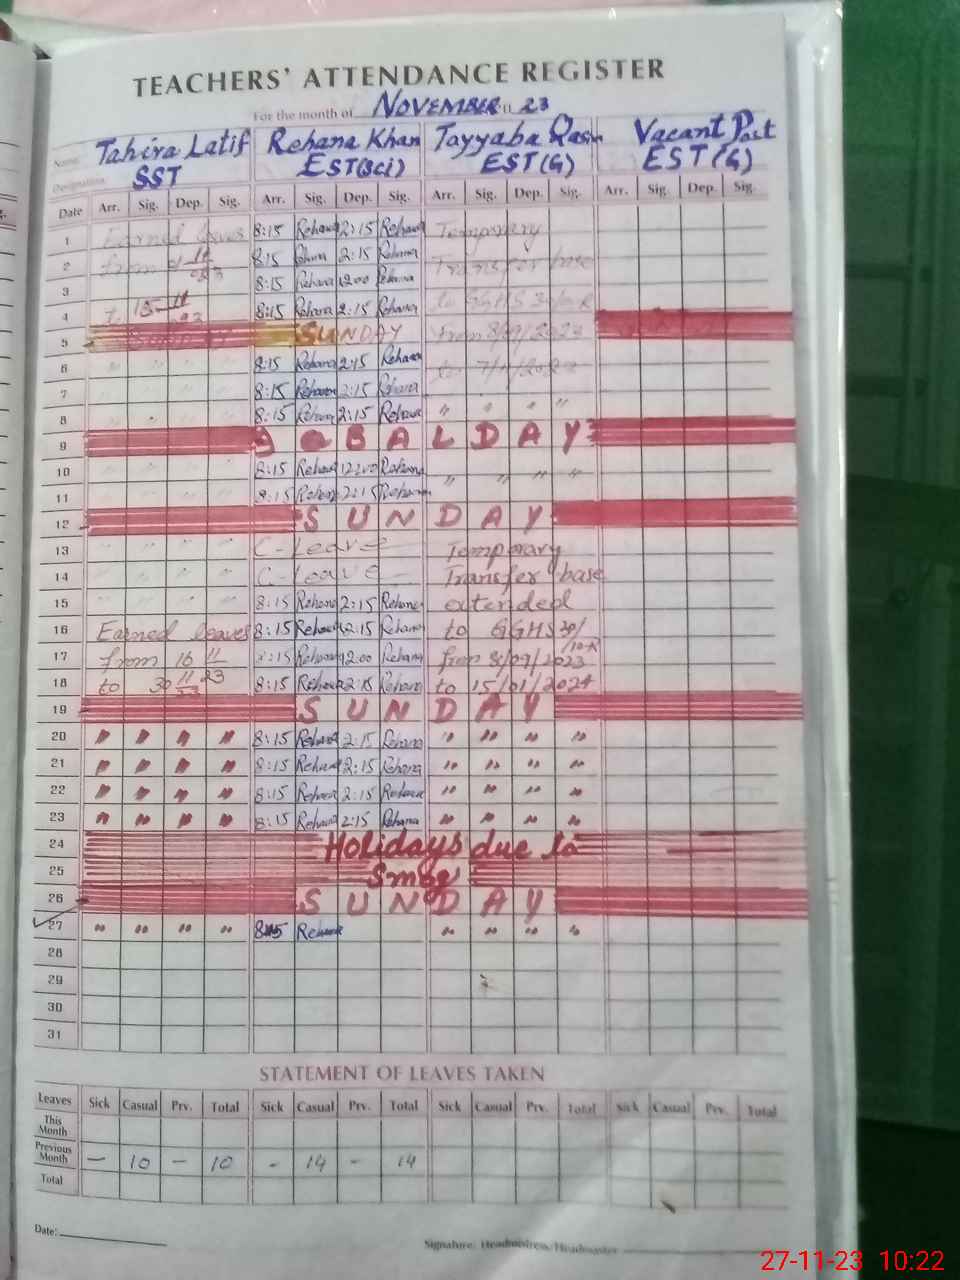 TEACHERS' ATTENDANCE REGISTER
For the month of NOVEMBER 23
Name: Tahira Latif Rehana Khan Tayyaba Vacant Post
Designation: SST EST(Sci) EST(G) EST(G)
Date Arr. Sig. Dep. Sig. Arr. Sig. Dep. Sig. Arr. Sig. Dep. Sig. Arr. Sig. Dep. Sig.
1 Earned leaves 8:15 Rehana 2:15 Rehana Temporary
2 from 8:15 2:15 Rehana Transfer base
3 8:15 Rehana 12:00 Rehana
4 to 8:15 Rehana 2:15 Rehana to GGHS
5 SUNDAY SUNDAY from 8/09/2023
6 " " " 8:15 Rehana 2:15 Rehana to
7 " " " 8:15 Rehana 2:15 Rehana
8 " " " 8:15 Rehana 2:15 Rehana " " " "
9 BAL DAY
10 " " " 8:15 Rehana 12:00 Rehana
11 " " " 8:15 Rehana 2:15 Rehana " " " "
12 SUNDAY
13 " " " " C-Leave Temporary
14 " " " " C-Leave Transfer base
15 " " " " 8:15 Rehana 2:15 Rehana extended
16 Earned leaves 8:15 Rehana 2:15 Rehana to GGHS 30/
17 from 16 11 8:15 Rehana 12:00 Rehana 10-R from 8/09/2023
18 to 30 11 23 8:15 Rehana 2:15 Rehana to 15/01/2024
19 SUNDAY
20 " " " " 8:15 Rehana 2:15 Rehana " " " "
21 " " " " 8:15 Rehana 2:15 Rehana " " " "
22 " " " " 8:15 Rehana 2:15 Rehana " " " "
23 " " " " 8:15 Rehana 2:15 Rehana " " " "
24 Holidays due to
25 Smog
26 SUNDAY
27 " " " " 8:15 Rehana " " " "
28
29
30
31
STATEMENT OF LEAVES TAKEN
Leaves Sick Casual Prv. Total Sick Casual Prv. Total Sick Casual Prv. Total Sick Casual Prv. Total
This Month
Previous Month - 10 - 10 - 14 - 14
Total
Date:
Signature: Headmistress/Headmaster
27-11-23 10:22